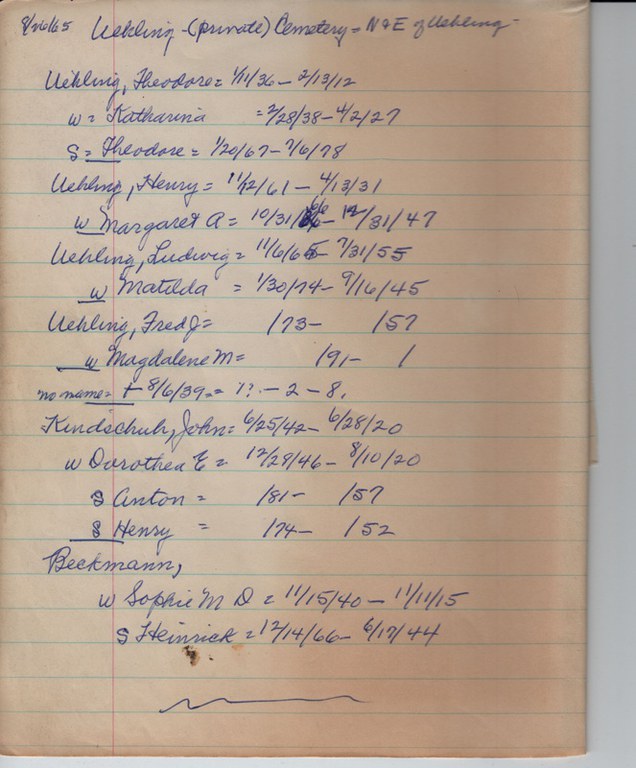 8/26/65 Uehling - (private) Cemetery = N & E of Uehling -
Uehling, Theodore = 1/11/36 - 2/13/12
w = Katharina = 2/28/38 - 4/2/27
S = Theodore = 1/20/67 - 7/6/78
Uehling, Henry = 11/12/61 - 4/13/31
w Margaret A = 10/31/66 - 12/31/47
Uehling, Ludwig = 11/6/65 - 7/31/55
w Matilda = 1/30/74 - 9/16/45
Uehling, Fred J = /73 - /57
w Magdalene M = /91 - /
no name = + 8/6/39 = = 1? - 2 - 8.
Kindschuh, John = 6/25/42 - 6/28/20
w Dorothea E = 12/29/46 - 8/10/20
S Anton = /81 - /57
S Henry = /74 - /52
Beckmann,
w Sophie M D = 11/15/40 - 11/11/15
S Heinrick = 12/14/66 - 6/17/44